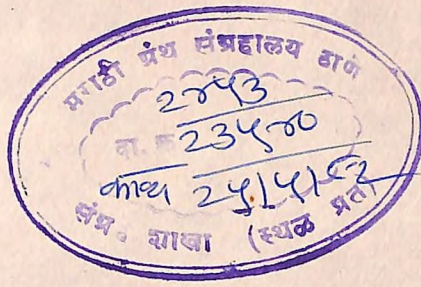 मराठी ग्रंथ संग्रहालय ठाणे
२७५३
दा. क्र २३५७०
काव्य २५।५।८२
संग्र. शाखा (स्थळ प्रत)